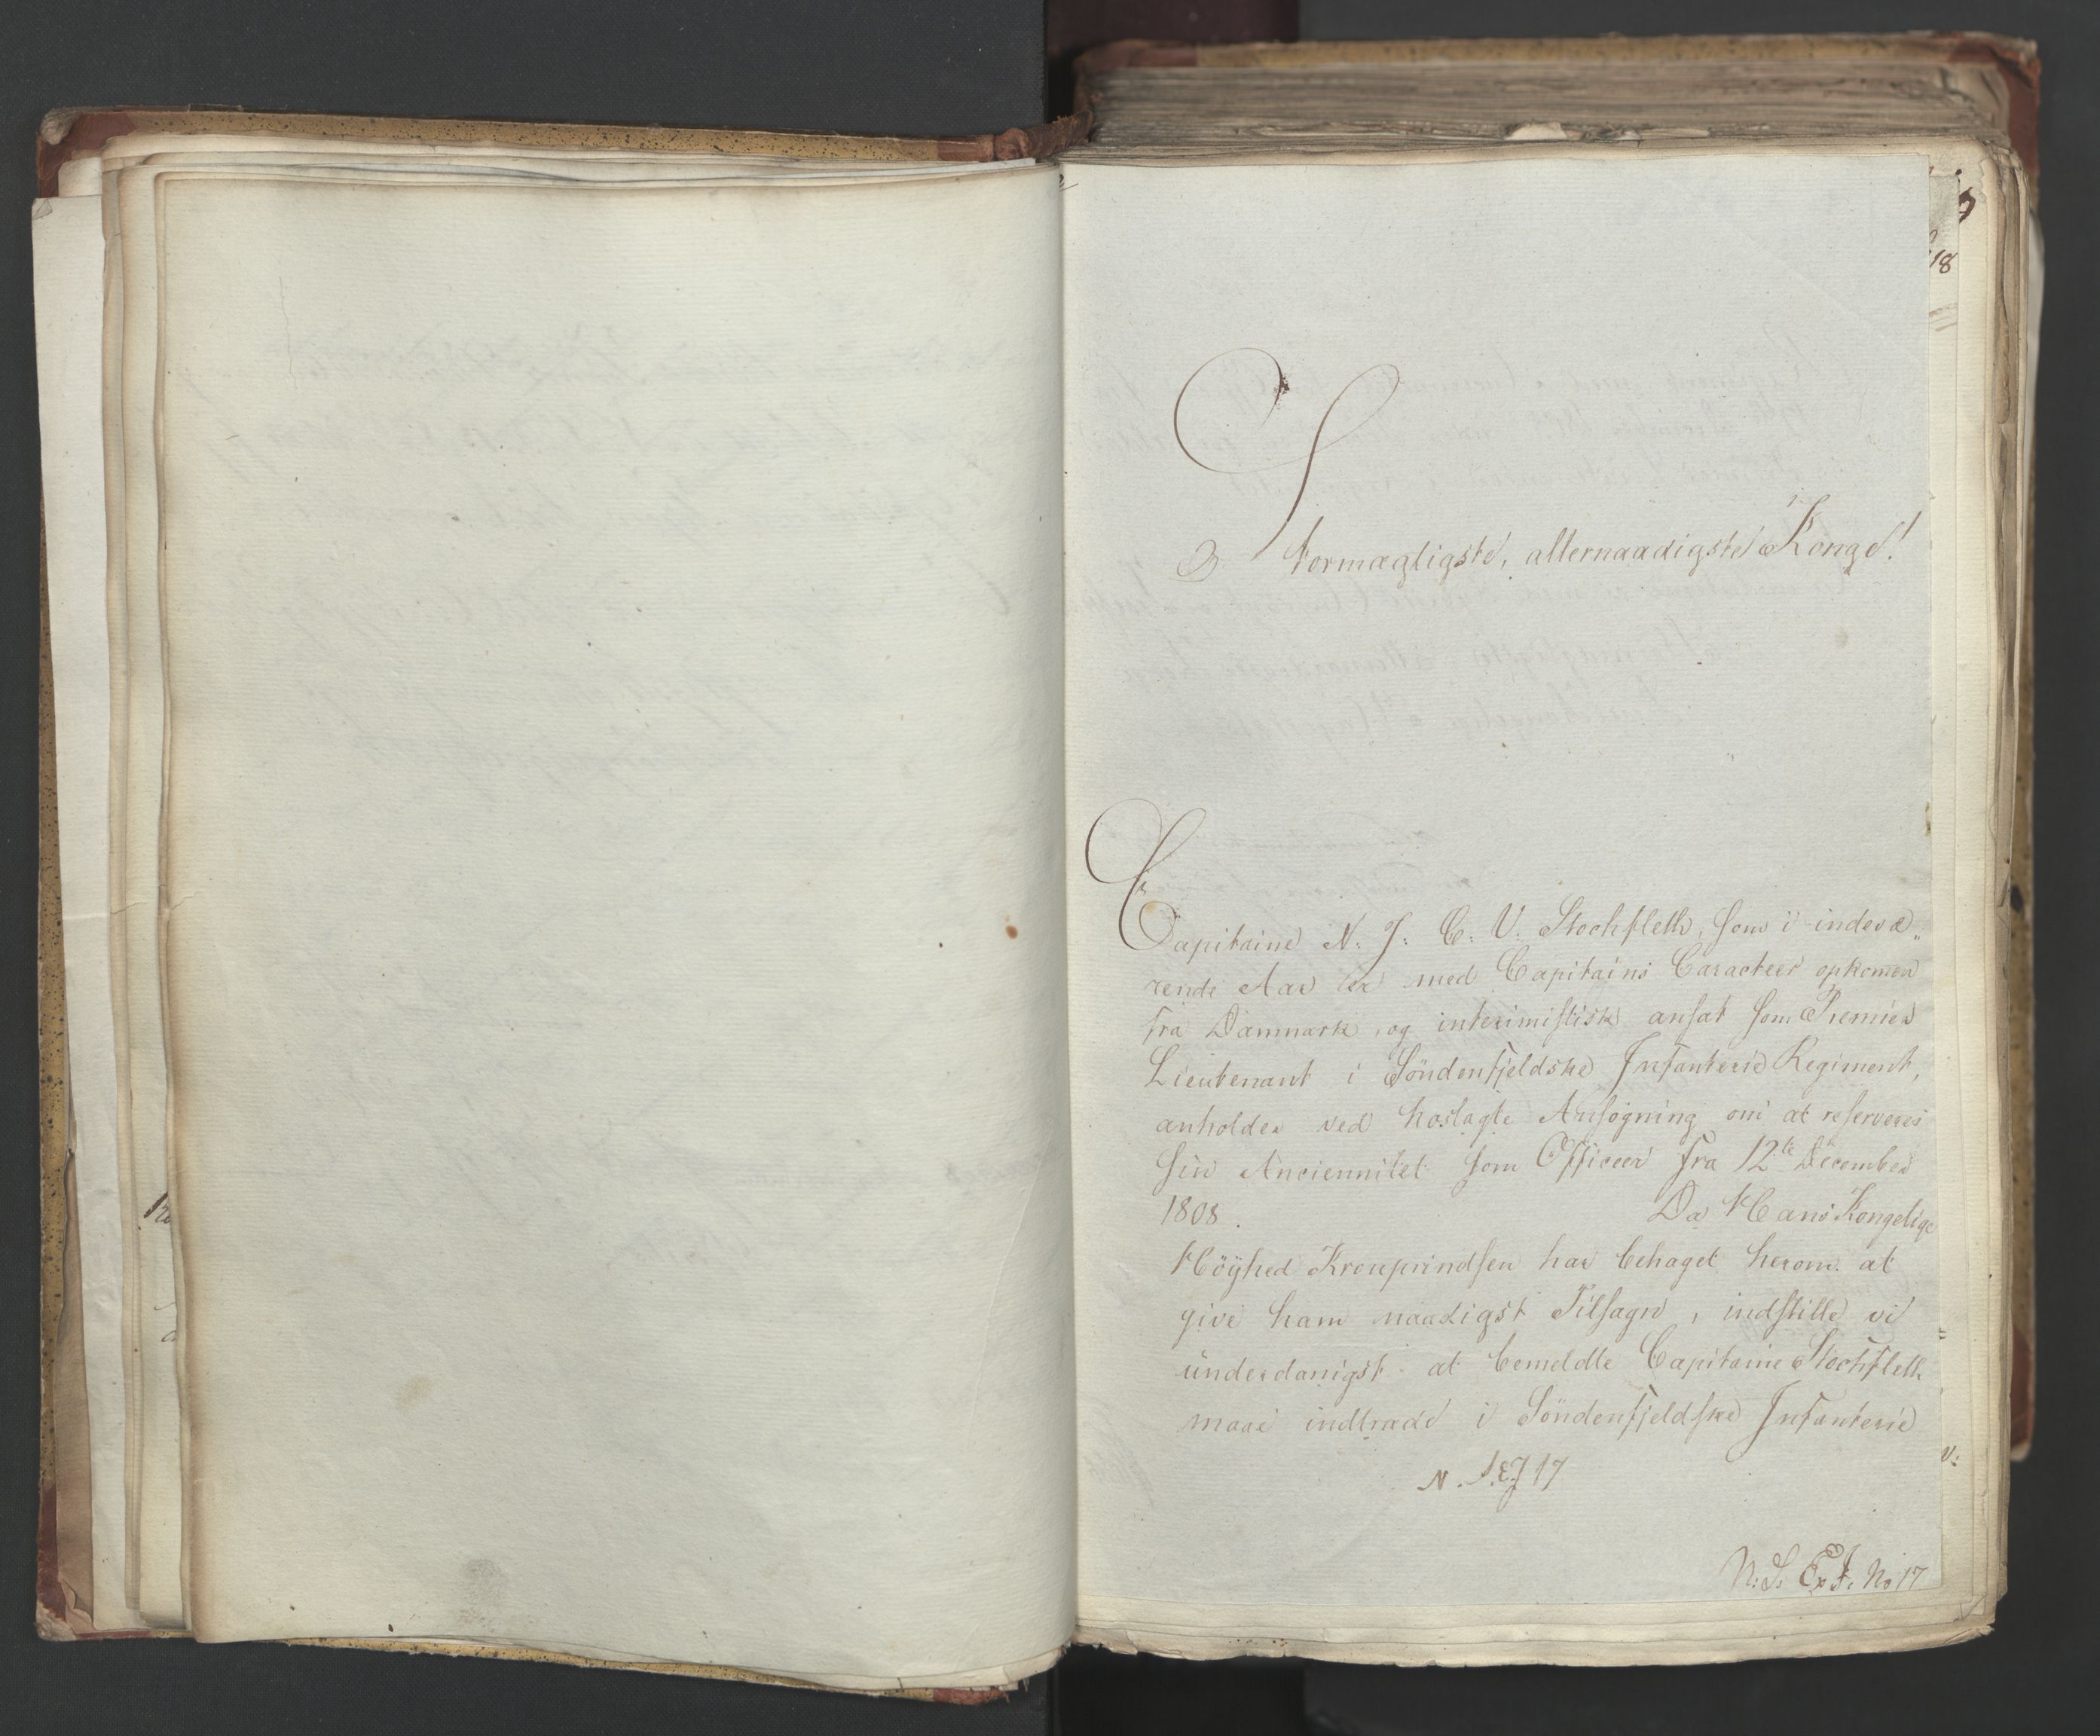 Stormægtigste, allernaadigste Konge!
Capitaine N: J: C: V: Stockfleth, som i indevæ„
rende Aar er med Capitains Caracteer opkommen
fra Danmark, og interimistisk ansat som Premier
Lieutenant i Söndenfjeldske Infanterie Regiment,
anholder ved hoslagte Ansøgning om at reserveres
sin Anciennitet som Officeer fra 12te December
1808. Da Hans Kongelige
Höÿhed Kronprindsen har behaget herom at
give ham naadigst Tilsagn, indstille vi
underdanigst at bemeldte Capitaine Stockfleth
maae indtræde i Söndenfjeldske Infanterie
N. S. E. J 17
N: S. Ex J. No 17
18